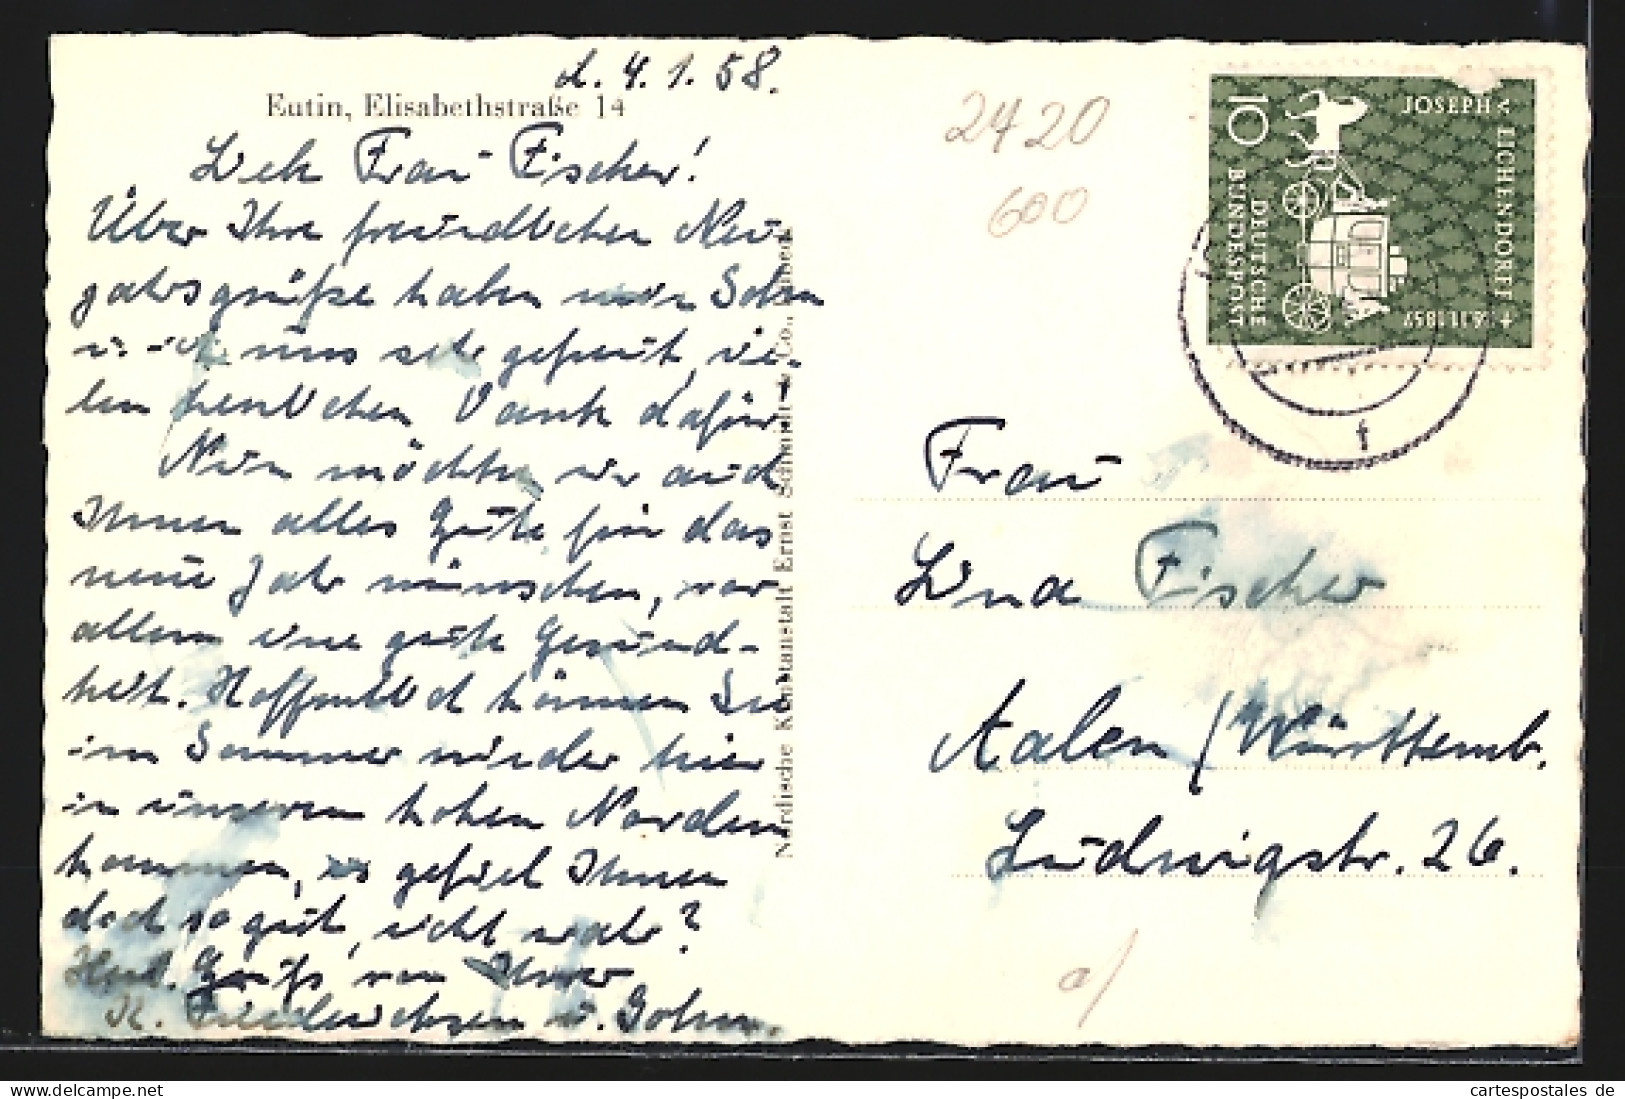 d. 4.1.58.
Eutin, Elisabethstraße 14
Lieb Frau Fischer!
Über Ihre freundlichen Neu-
jahrsgrüße haben mein Sohn
u. ich uns sehr gefreut, vie-
len herzlichen Dank dafür.
Nun möchten wir auch
Ihnen alles Gute für das
neue Jahr wünschen, vor
allem eine gute Gesund-
heit. Hoffentlich können Sie
im Sommer wieder hier
in unseren hohen Norden
kommen, es gefiel Ihnen
doch so gut, nicht wahr?
Herzl. Grüße von Ihrer
K. Friederichsen u. Sohn.
Nordische Kunstanstalt Ernst Schmidt & Co., Lübeck
2420
600
JOSEPH v. EICHENDORFF
+ 26.11.1857
10
DEUTSCHE
BUNDESPOST
f
Frau
Lina Fischer
Aalen / Württemb.
Ludwigstr. 26.
a/
Hansa-Live.eu
cartespostales de